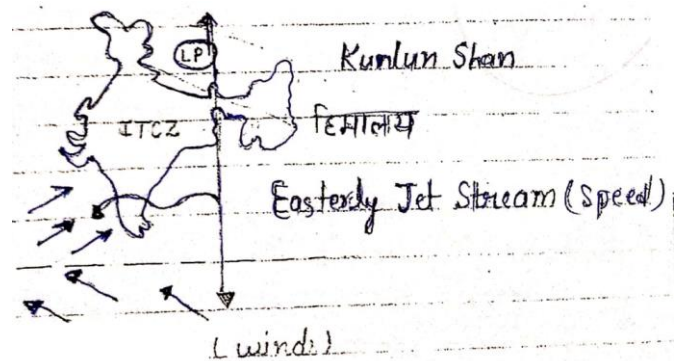 LP
Kunlun Shan
ITCZ
हिमालय
Easterly Jet Stream (Speed)
(winds)